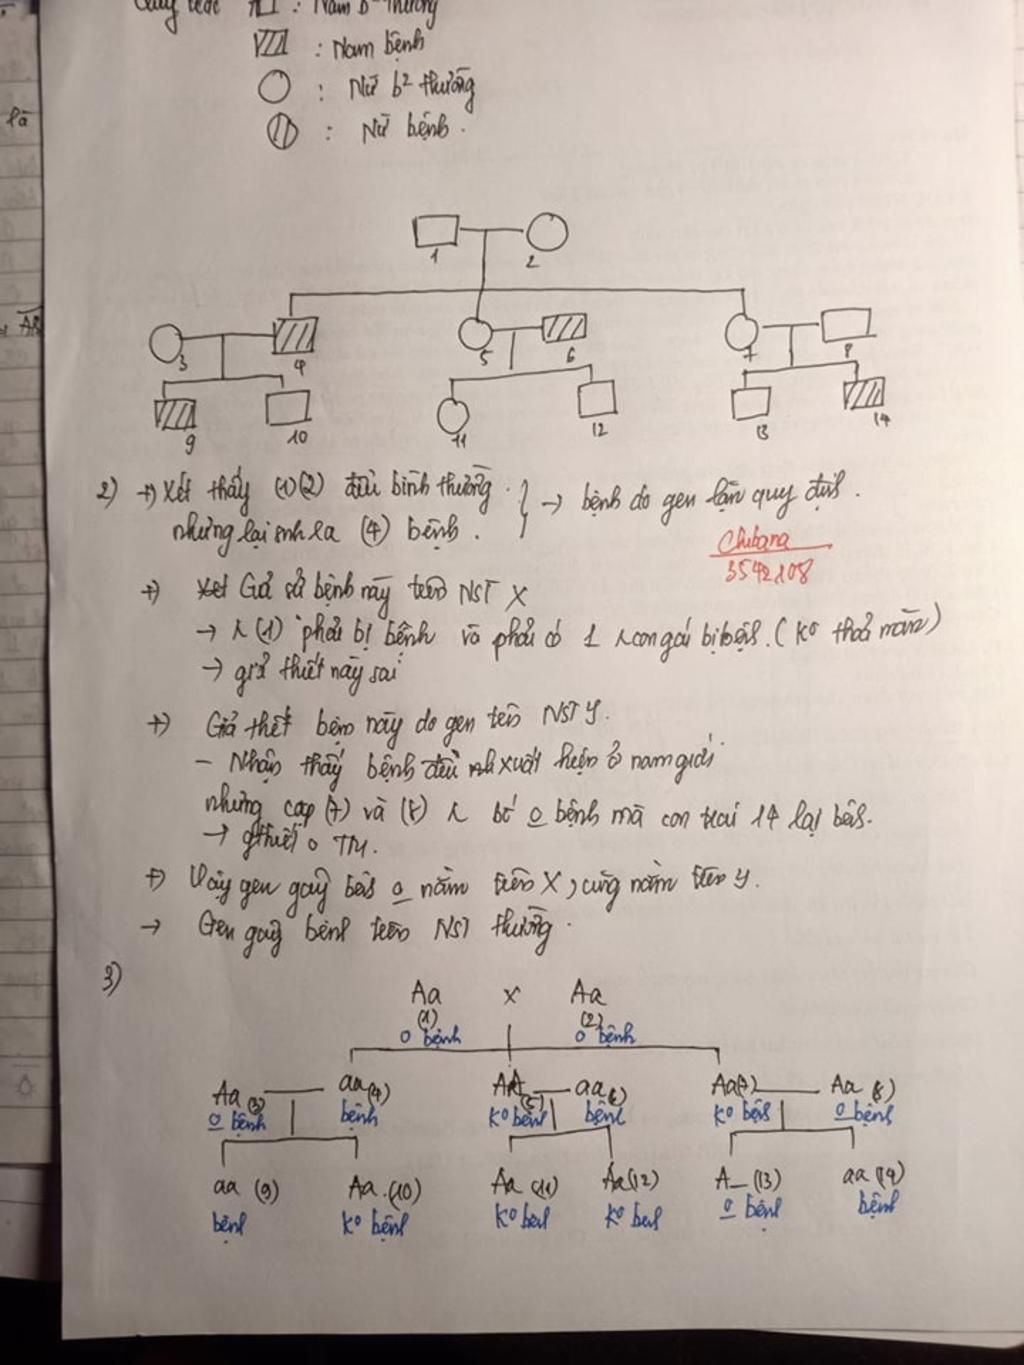 : Nam bệnh
: Nữ b² thường
: Nữ bệnh.
là
1
2
3
4
5
6
7
8
9
10
11
12
13
14
2) +) Xét thấy (1)(2) đều bình thường. → bệnh do gen lặn quy định.
nhưng lại sinh ra (4) bệnh.
Chibana
3542108
+) Giả sử bệnh này trên NST X
→ (1) phải bị bệnh và phải có 1 con gái bị bệnh. (ko thoả mãn)
→ giả thiết này sai
+) Giả thiết bệnh này do gen trên NST Y.
- Nhận thấy bệnh đều xuất hiện ở nam giới
nhưng cặp (7) và (8) bố o bệnh mà con trai 14 lại bệnh.
→ gthiết o TM.
+) Vậy gen gây bệnh o nằm trên X, cũng nằm trên Y.
→ Gen gây bệnh trên NST thường.
3)
Aa x Aa
(1) (2)
o bệnh o bệnh
Aa (3) aa (4) AA (5) aa (6) Aa (7) Aa (8)
o bệnh bệnh ko bệnh bệnh ko bệnh o bệnh
aa (9) Aa (10) Aa (11) Aa (12) A_ (13) aa (14)
bệnh ko bệnh ko bệnh ko bệnh o bệnh bệnh